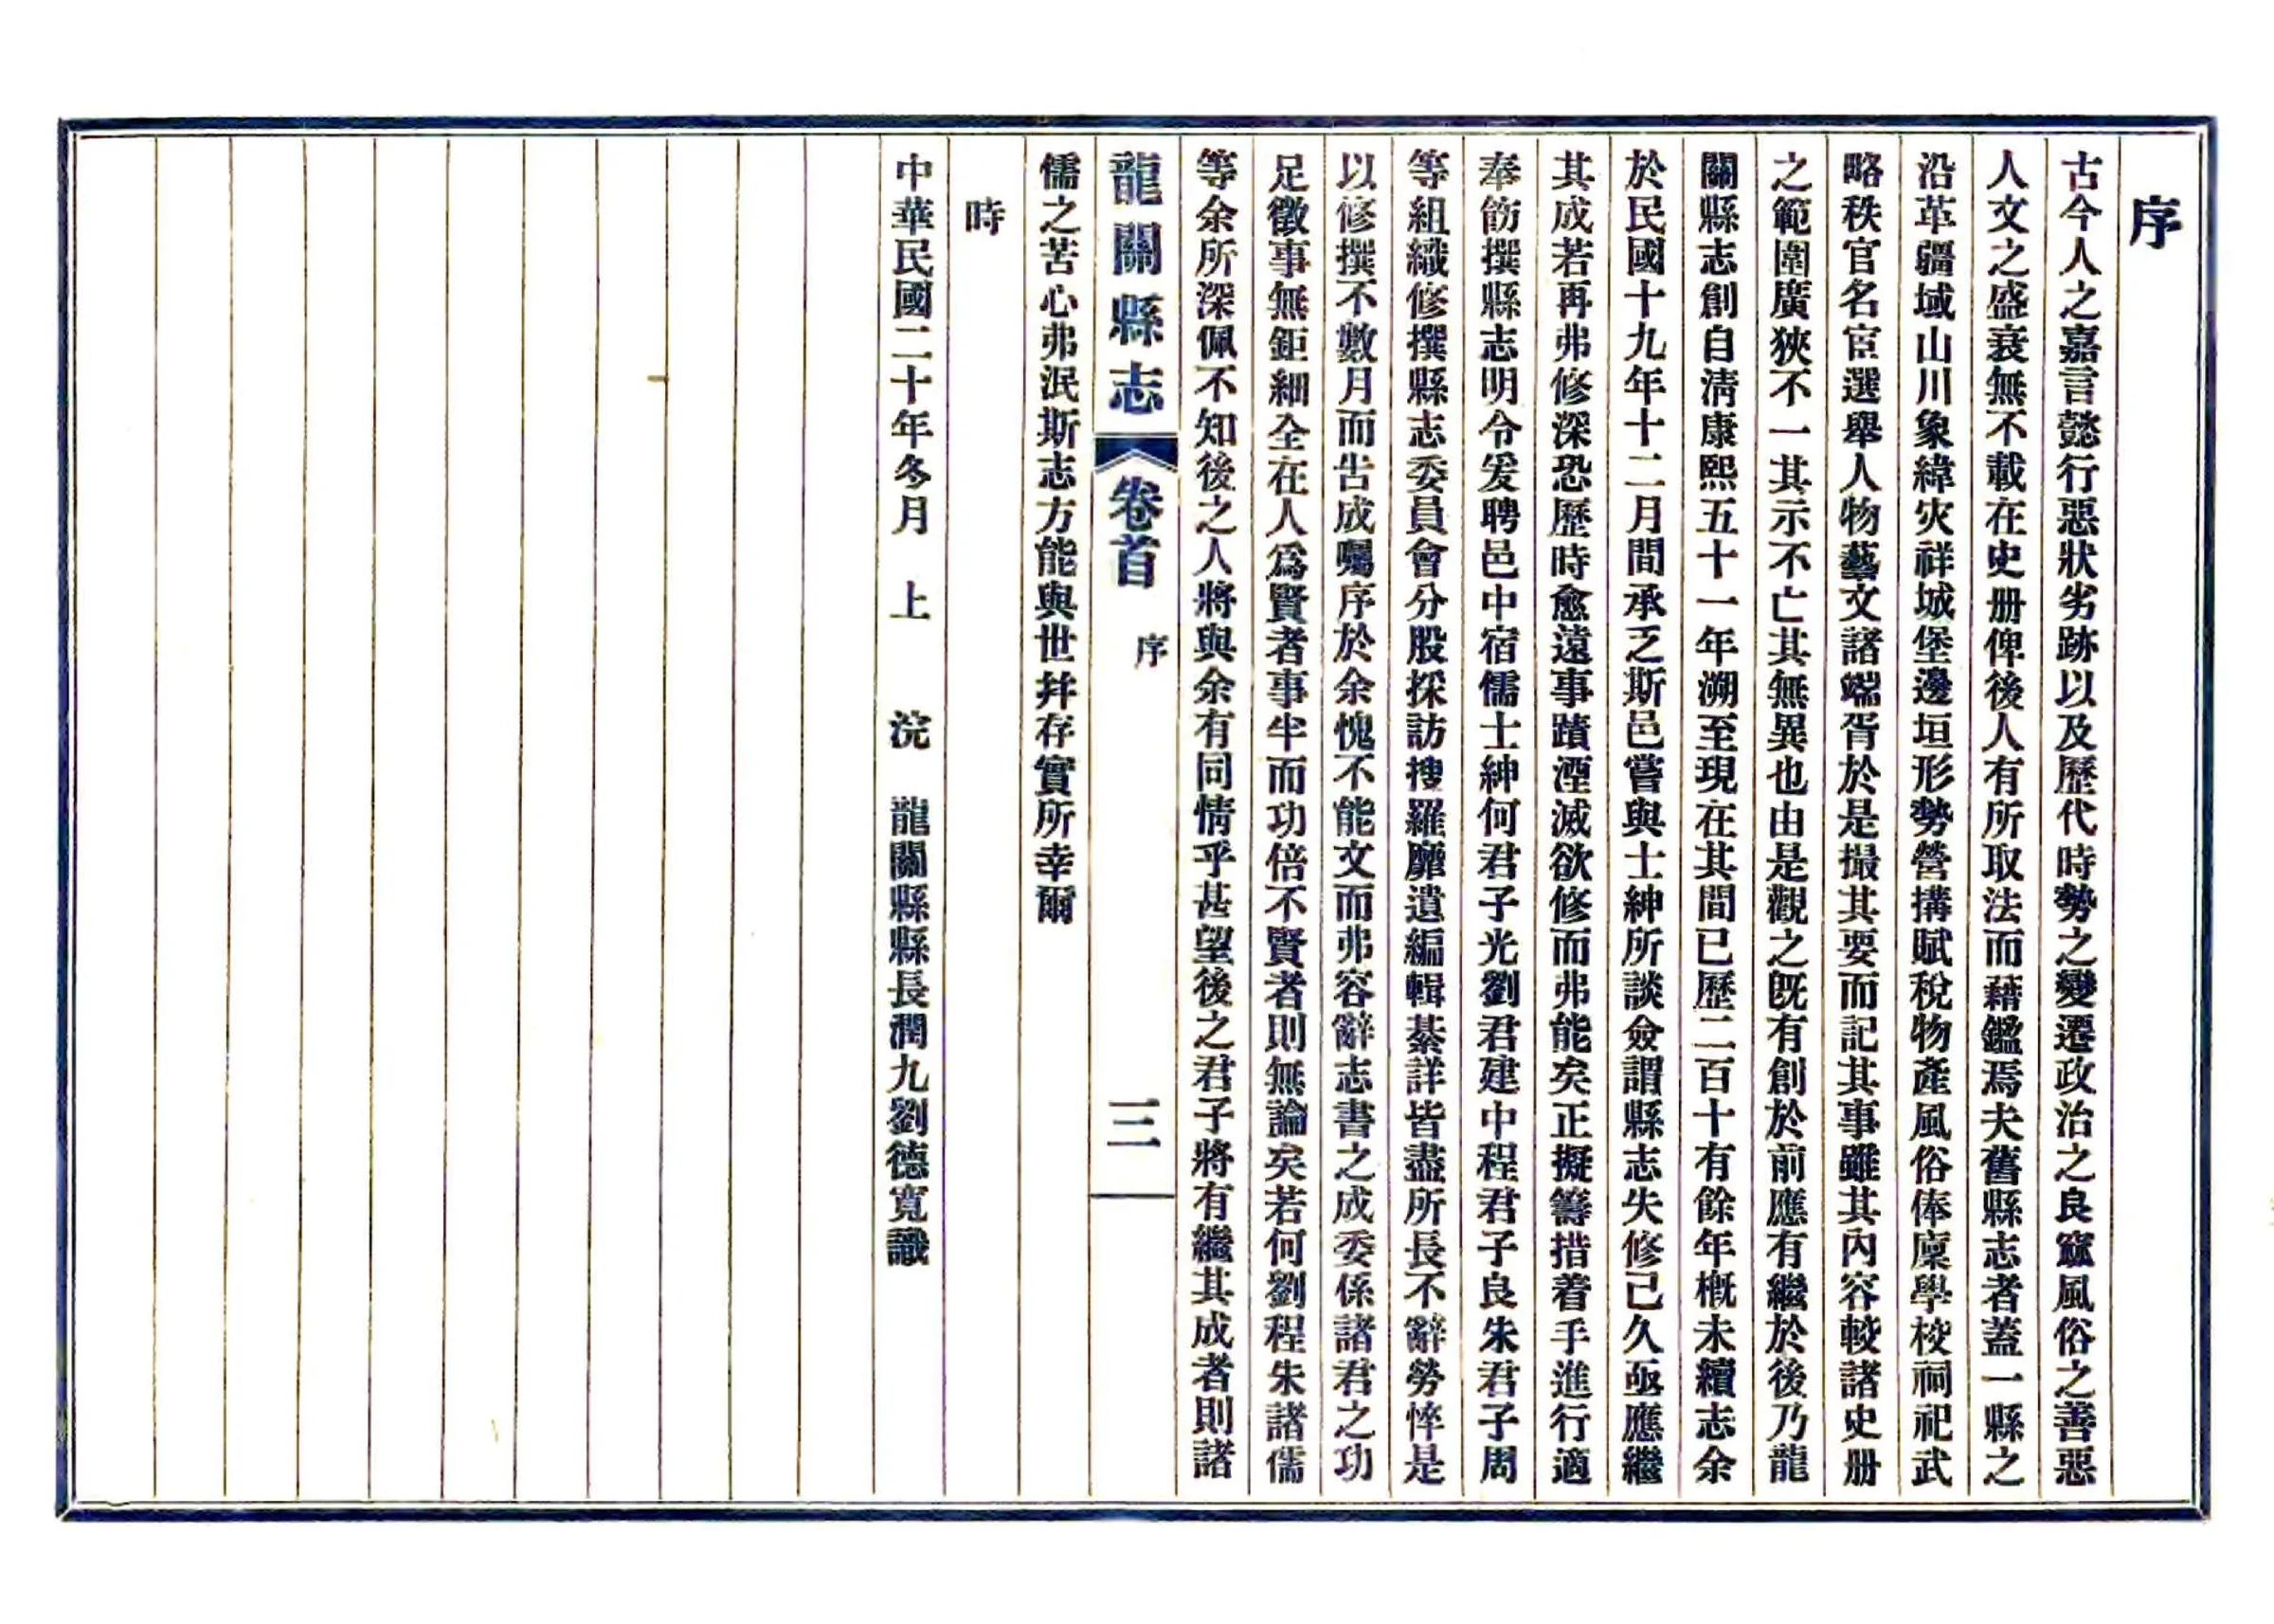 序
古今人之嘉言懿行惡狀劣跡以及歷代時勢之變遷政治之良窳風俗之善惡
人文之盛衰無不載在史册俾後人有所取法而藉鑑焉夫舊縣志者蓋一縣之
沿革疆域山川象緯灾祥城堡邊垣形勢營搆賦稅物產風俗俸廩學校祠祀武
略秩官名宦選舉人物藝文諸端胥於是撮其要而記其事雖其內容較諸史册
之範圍廣狹不一其示不亡其無異也由是觀之旣有創於前應有繼於後乃龍
關縣志創自淸康熙五十一年溯至現在其間已歷二百十有餘年槪未續志余
於民國十九年十二月間承乏斯邑嘗與士紳所談僉謂縣志失修已久亟應繼
其成若再弗修深恐歷時愈遠事蹟湮滅欲修而弗能矣正擬籌措着手進行適
奉飭撰縣志明令爰聘邑中宿儒士紳何君子光劉君建中程君子良朱君子周
等組織修撰縣志委員會分股採訪搜羅靡遺編輯綦詳皆盡所長不辭勞悴是
以修撰不數月而吿成囑序於余愧不能文而弗容辭志書之成委係諸君之功
足徵事無鉅細全在人爲賢者事半而功倍不賢者則無論矣若何劉程朱諸儒
等余所深佩不知後之人將與余有同情乎甚望後之君子將有繼其成者則諸
龍關縣志 卷首 序 三
儒之苦心弗泯斯志方能與世幷存實所幸爾
時
中華民國二十年冬月 上 浣 龍關縣縣長潤九劉德寬識